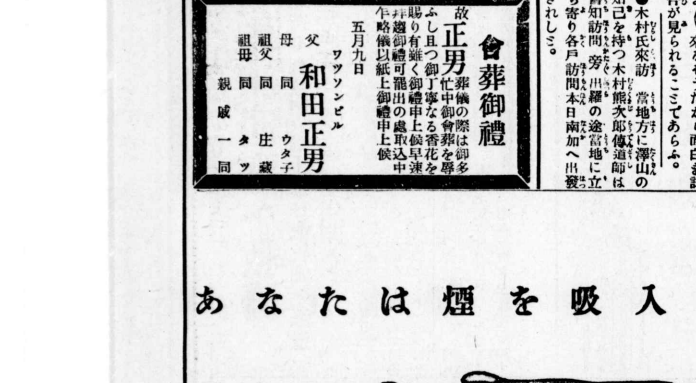 ●木村氏來訪 當地方に澤山の
知己を持つ木村熊次郎傳道師は
知訪問旁出羅の途當地に立
ち寄り各戸訪問本日南加へ出發
されしミ。
會葬御禮
故正男葬儀の際は御多
忙中御會葬を辱
ふし且つ御丁寧なる香花を
賜り有難く御禮申上候早速
拜趨御禮可罷出の處取込中
乍略儀以紙上御禮申上候
五月九日
ワツソンビル
父 和田正男
母 同 ウタ子
祖父 同 庄藏
祖母 同 タツ
親戚一同
あなたは煙を吸入